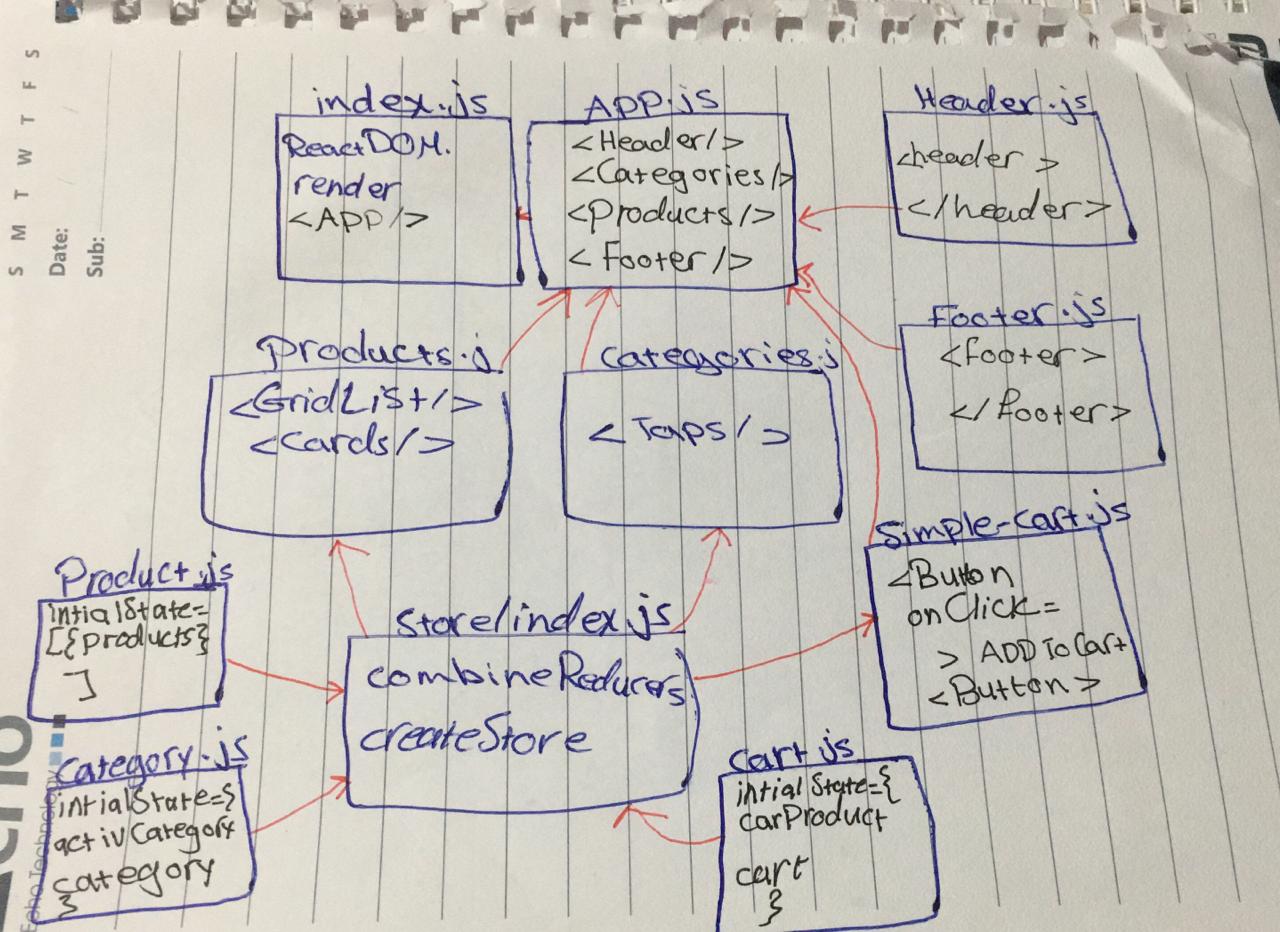 S M T W T F S
Date: / /
Sub:
index.js
ReactDOM.
render
<APP/>
APP.js
<Header/>
<Categories/>
<Products/>
<Footer/>
Header.js
<header >
</header>
Products.j
<GridList/>
<Cards/>
Categories.j
<Taps/>
Footer.js
<footer>
</footer>
Simple-Cart.js
<Button
onClick=
> ADD To Cart
<Button>
Product.js
intialState=
[{products}
]
Store/index.js
combineReducers
createStore
Category.js
intialState={
activCategory
category
}
Cart.js
intialState={
carProduct
cart
}
Echo Technology